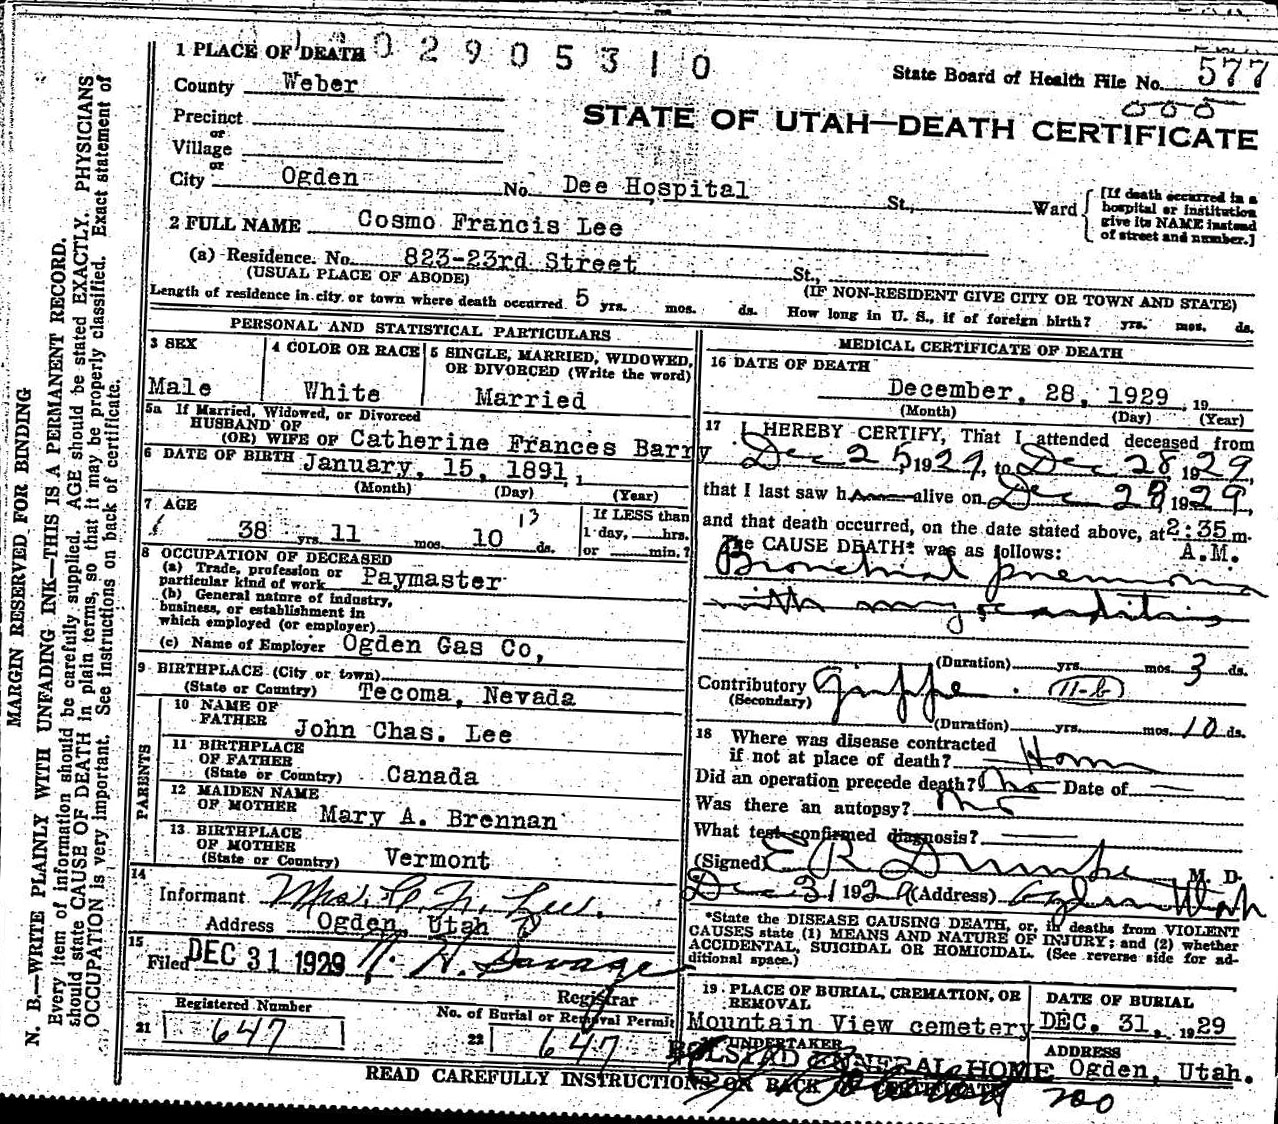 1 PLACE OF DEATH
02905310
State Board of Health File No. 577
County Weber
STATE OF UTAH—DEATH CERTIFICATE
Precinct
or
Village
or
City Ogden No. Dee Hospital St., Ward
[If death occurred in a
hospital or institution
give its NAME instead
of street and number.]
2 FULL NAME Cosmo Francis Lee
(a) Residence. No. 823-23rd Street St.,
(USUAL PLACE OF ABODE) (IF NON-RESIDENT GIVE CITY OR TOWN AND STATE)
Length of residence in city or town where death occurred 5 yrs. mos. ds. How long in U. S., if of foreign birth? yrs. mos. ds.
PERSONAL AND STATISTICAL PARTICULARS
3 SEX
Male
4 COLOR OR RACE
White
5 SINGLE, MARRIED, WIDOWED,
OR DIVORCED (Write the word)
Married
5a If Married, Widowed, or Divorced
HUSBAND OF
(OR) WIFE OF Catherine Frances Barry
6 DATE OF BIRTH January, 15, 1891, 1
(Month) (Day) (Year)
7 AGE
38 yrs. 11 mos. 10 13 ds.
If LESS than
1 day, hrs.
or min.?
8 OCCUPATION OF DECEASED
(a) Trade, profession or
particular kind of work Paymaster
(b) General nature of industry,
business, or establishment in
which employed (or employer)
(c) Name of Employer Ogden Gas Co,
9 BIRTHPLACE (City or town)
(State or Country) Tecoma, Nevada
PARENTS
10 NAME OF
FATHER John Chas. Lee
11 BIRTHPLACE
OF FATHER
(State or Country) Canada
12 MAIDEN NAME
OF MOTHER Mary A. Brennan
13 BIRTHPLACE
OF MOTHER
(State or Country) Vermont
14
Informant Mrs. C. F. Lee.
Address Ogden, Utah
15
Filed DEC 31 1929 Savage
Registrar
Registered Number
21 647
No. of Burial or Removal Permit
22 647
MEDICAL CERTIFICATE OF DEATH
16 DATE OF DEATH
December, 28, 1929 , 19
(Month) (Day) (Year)
17 I HEREBY CERTIFY, That I attended deceased from
Dec 25, 1929, to Dec 28 1929,
that I last saw h alive on Dec 28 1929,
and that death occurred, on the date stated above, at 2:35 m.
A.M.
The CAUSE DEATH* was as follows:
Bronchial pneumonia
with myocarditis
(Duration) yrs. mos. 3 ds.
Contributory Grippe 11-b
(Secondary)
(Duration) yrs. mos. 10 ds.
18 Where was disease contracted
if not at place of death? Home
Did an operation precede death? No Date of —
Was there an autopsy? No
What test confirmed diagnosis?
(Signed) E R Dumke M. D.
Dec 31 1929 (Address) Ogden Utah
*State the DISEASE CAUSING DEATH, or, in deaths from VIOLENT
CAUSES state (1) MEANS AND NATURE OF INJURY; and (2) whether
ACCIDENTAL, SUICIDAL OR HOMICIDAL. (See reverse side for ad-
ditional space.)
19 PLACE OF BURIAL, CREMATION, OR
REMOVAL
Mountain View cemetery
DATE OF BURIAL
DEC. 31, 1929
UNDERTAKER
FUNERAL HOME
ADDRESS
Ogden, Utah.
READ CAREFULLY INSTRUCTIONS ON BACK OF CERTIFICATE
MARGIN RESERVED FOR BINDING
N. B.—WRITE PLAINLY WITH UNFADING INK—THIS IS A PERMANENT RECORD.
Every item of information should be carefully supplied. AGE should be stated EXACTLY. PHYSICIANS
should state CAUSE OF DEATH in plain terms, so that it may be properly classified. Exact statement of
OCCUPATION is very important. See instructions on back of certificate.